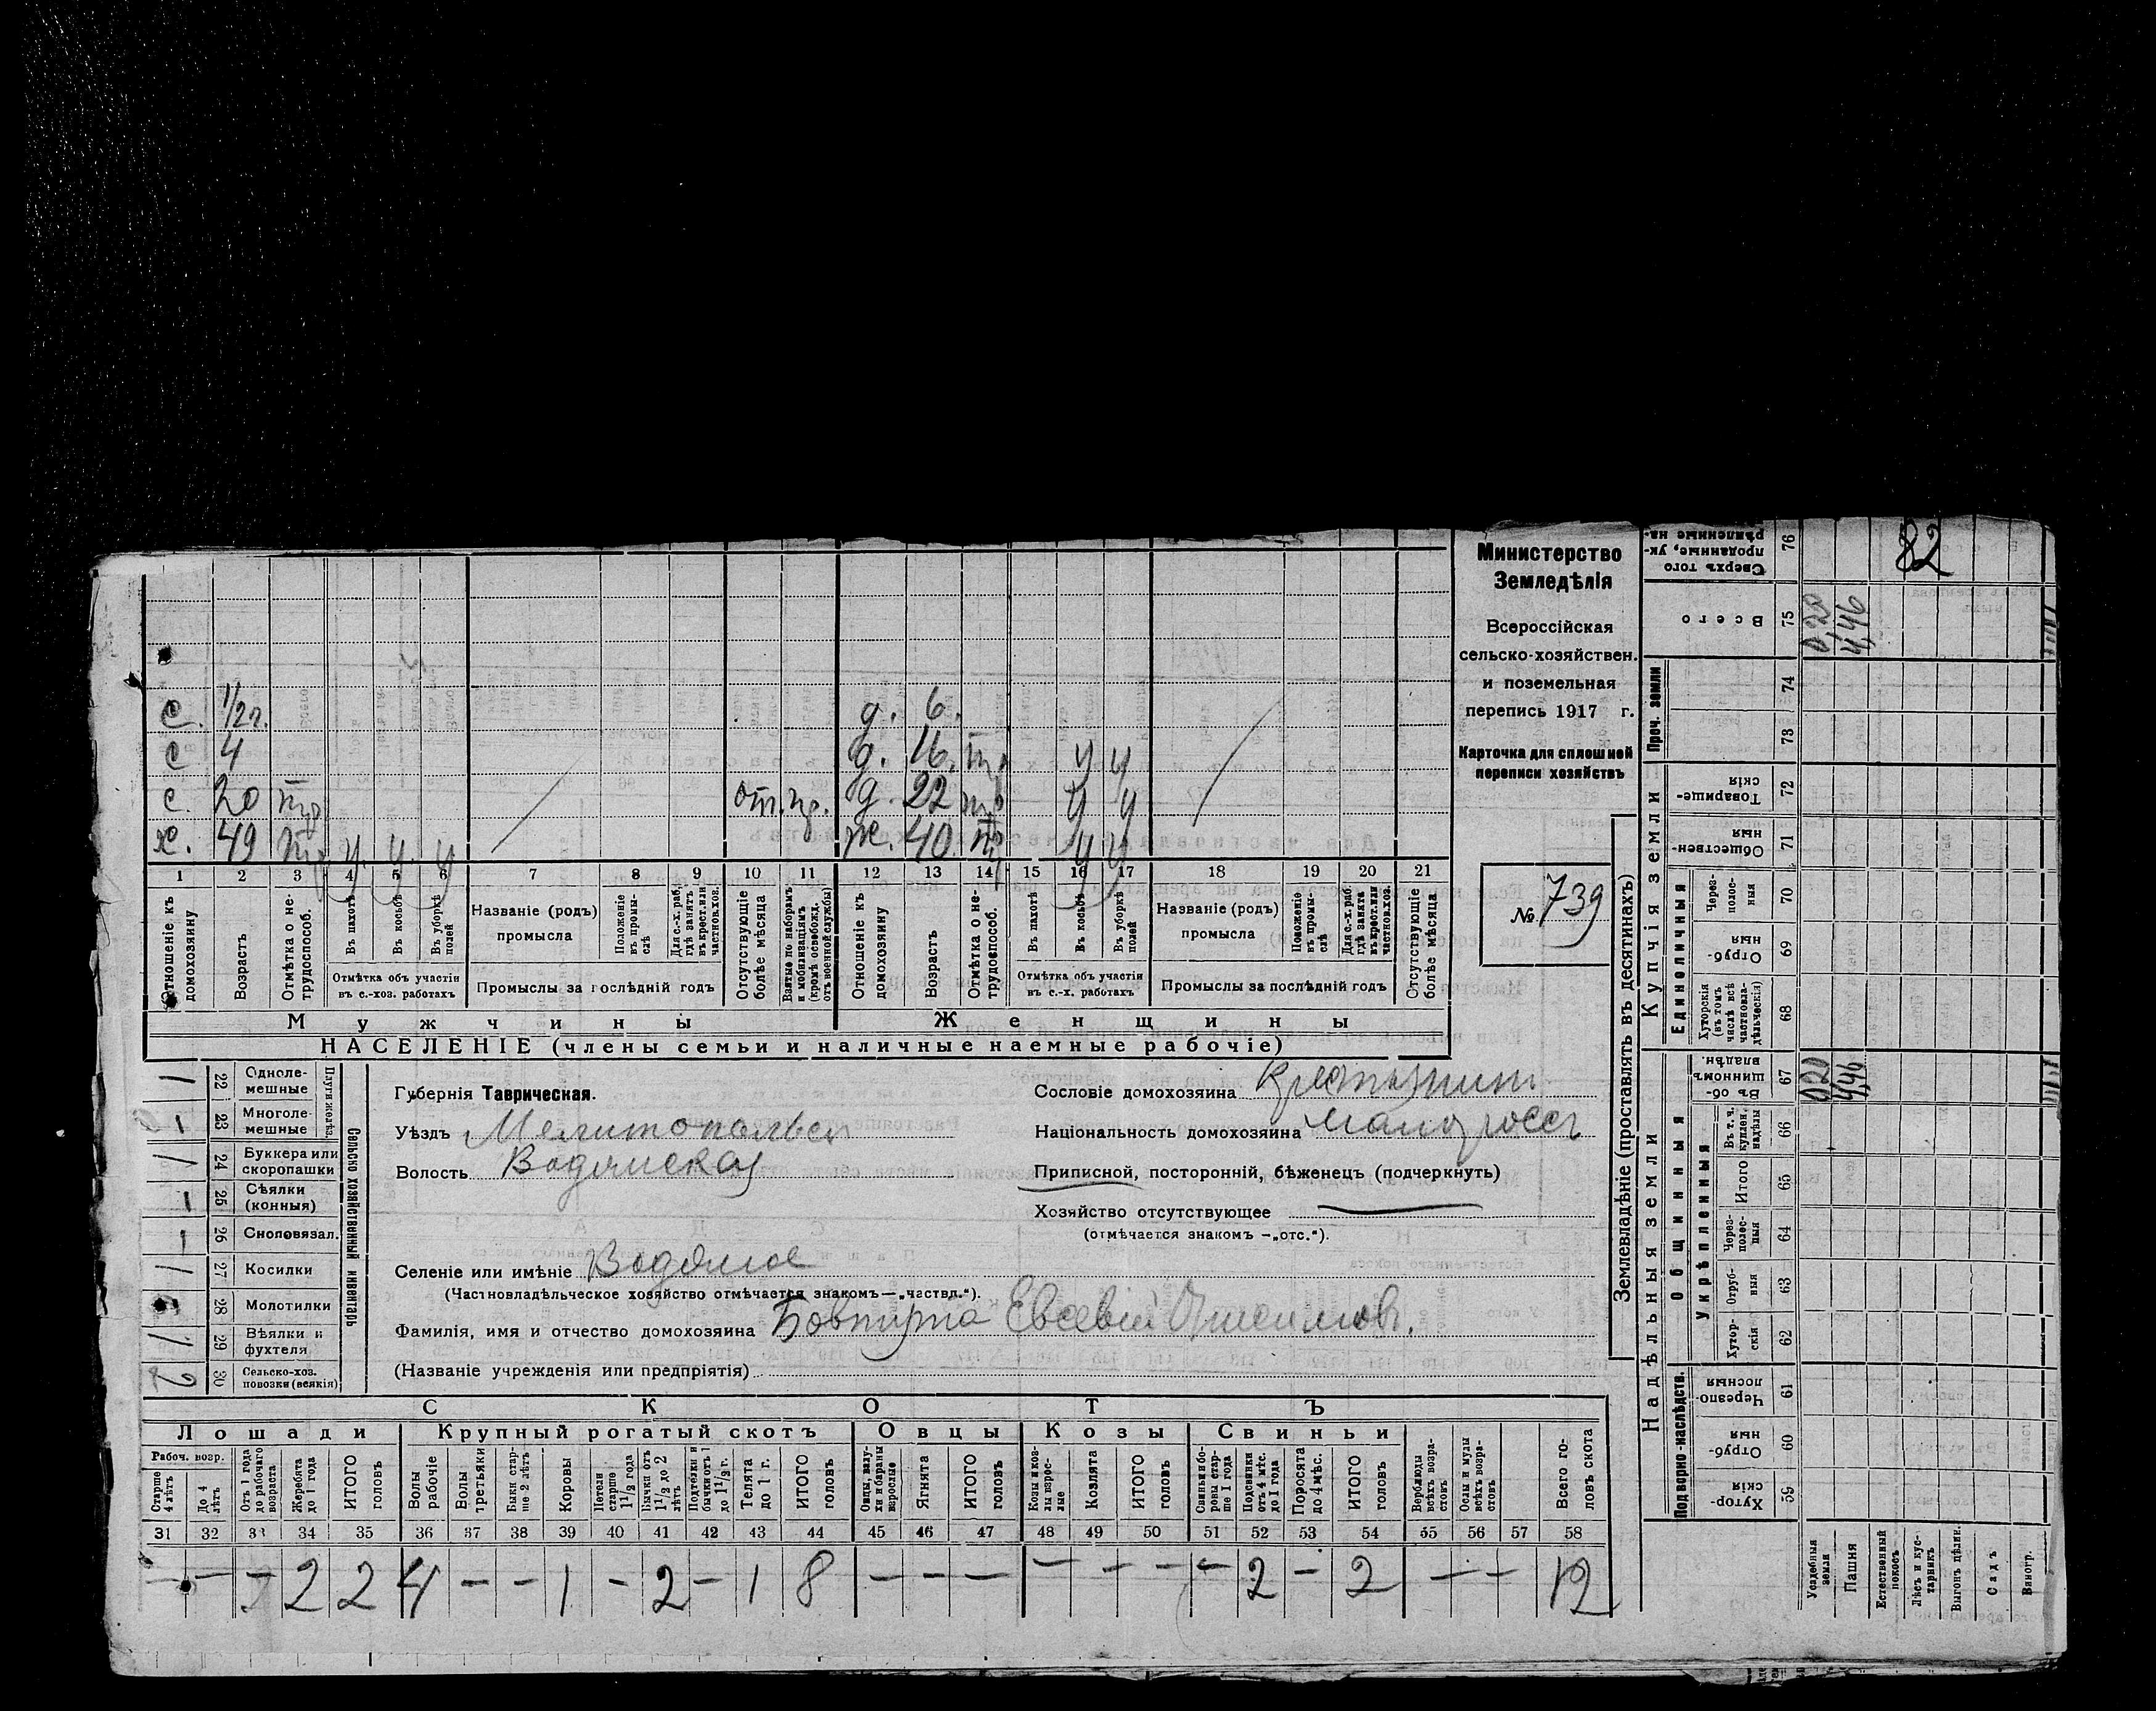 82
Министерство
Земледѣлія
Всероссійская
сельско-хозяйствен.
и поземельная
перепись 1917 г.
Карточка для сплошной
переписи хозяйствъ
№ 739
с. 1/2 г. д. 6.
с 4 д. 16. тр у у
с. 20 тр отп. пр. д. 22 тр у у
х. 49 тр у. у. у ж. 40. тр у у
1 2 3 4 5 6 7 8 9 10 11 12 13 14 15 16 17 18 19 20 21
Отношеніе къ домохозяину
Возрастъ
Отмѣтка о нетрудоспособ.
Въ пахотѣ
Въ косьбѣ
Въ уборкѣ полей
Отмѣтка объ участіи въ с.-хоз. работахъ
Названіе (родъ) промысла
Положеніе въ промыслѣ
Для с.-х. раб. гдѣ занятъ въ крест. или частнов. хоз.
Промыслы за послѣдній годъ
Отсутствующіе болѣе мѣсяца
Взятые по наборамъ и мобилизаціямъ (кромѣ освобожд. отъ военной службы)
Отношеніе къ домохозяину
Возрастъ
Отмѣтка о нетрудоспособ.
Въ пахотѣ
Въ косьбѣ
Въ уборкѣ полей
Отмѣтка объ участіи въ с.-х. работахъ
Названіе (родъ) промысла
Положеніе въ промыслѣ
Для с.-х. раб. гдѣ занята въ крест. или частнов. хоз.
Промыслы за послѣдній годъ
Отсутствующіе болѣе мѣсяца
Мужчины Женщины
НАСЕЛЕНІЕ (члены семьи и наличные наемные рабочіе)
Сельско хозяйственный инвентарь
Плуги желѣз.
22 Одноле-мешные
1 23 Многоле-мешные
24 Буккера или скоропашки
1 25 Сѣялки (конныя)
1 26 Сноповязал.
27 Косилки
28 Молотилки
29 Вѣялки и фухтеля
2 30 Сельско-хоз. повозки (всякія)
Губернія Таврическая.
Уѣздъ Мелитопольск
Волость Водянская
Сословіе домохозяина Крестьянин
Національность домохозяина малоросс
Приписной, посторонній, бѣженецъ (подчеркнуть)
Хозяйство отсутствующее
(отмѣчается знакомъ —„отс.“).
Селеніе или имѣніе Водяное
(Частновладѣльческое хозяйство отмѣчается знакомъ—„частвл.“).
Фамилія, имя и отчество домохозяина Бовпурта Евсевій
(Названіе учрежденія или предпріятія)
СКОТЪ
Лошади Крупный рогатый скотъ Овцы Козы Свиньи
Рабоч. возр.
Старше 4 лѣтъ
До 4 лѣтъ
Отъ 1 года до рабочаго возраста
Жеребята до 1 года
ИТОГО головъ
Волы рабочіе
Волы третьяки
Быки старше 2 лѣтъ
Коровы
Нетели старше 1 1/2 года
Бычки отъ 1 1/2 до 2 лѣтъ
Подтелки и бычки отъ 1 до 1 1/2 г.
Телята до 1 г.
ИТОГО головъ
Овцы, валухи и бараны взрослые
Ягнята
ИТОГО головъ
Козы и козлы взрослые
Козлята
ИТОГО головъ
Свиньи и боровы старше 1 года
Подсвинки отъ 4 мѣс. до 1 года
Поросята до 4 мѣс.
ИТОГО головъ
Верблюды всѣхъ возрастовъ
Ослы и мулы всѣхъ возрастовъ
Всего головъ скота
31 32 33 34 35 36 37 38 39 40 41 42 43 44 45 46 47 48 49 50 51 52 53 54 55 56 57 58
— — — 2 2 4 — — 1 — 2 — 1 8 — — — — — — — 2 — 2 — — 12
Землевладѣніе (проставлять въ десятинахъ)
Надѣльныя земли Купчія земли Проч. земли
Подворно-наслѣдств. Общинныя Единоличныя
Укрѣпленныя
Сверхъ того проданные, укрѣпленные на- 76
Всего 75 0,20 4,46
74
73
Товарищескія 72
Общественныя 71
Черезполосныя 70
Отрубныя 69
Хуторскія (въ томъ числѣ всѣ частновладѣльческія) 68
Въ общинномъ владѣн. 67 0,20 4,46
Въ т. ч. куплен. надѣлы 66
Итого 65
Черезполосныя 64
Отрубныя 63
Хуторскія 62
Черезполосныя 61
Отрубныя 60
Хуторскія 59
Усадебныя земли
Пашня
Естественный покосъ
Лѣсъ и кустарникъ
Выгонъ цѣлин.
Садъ
Виногр.